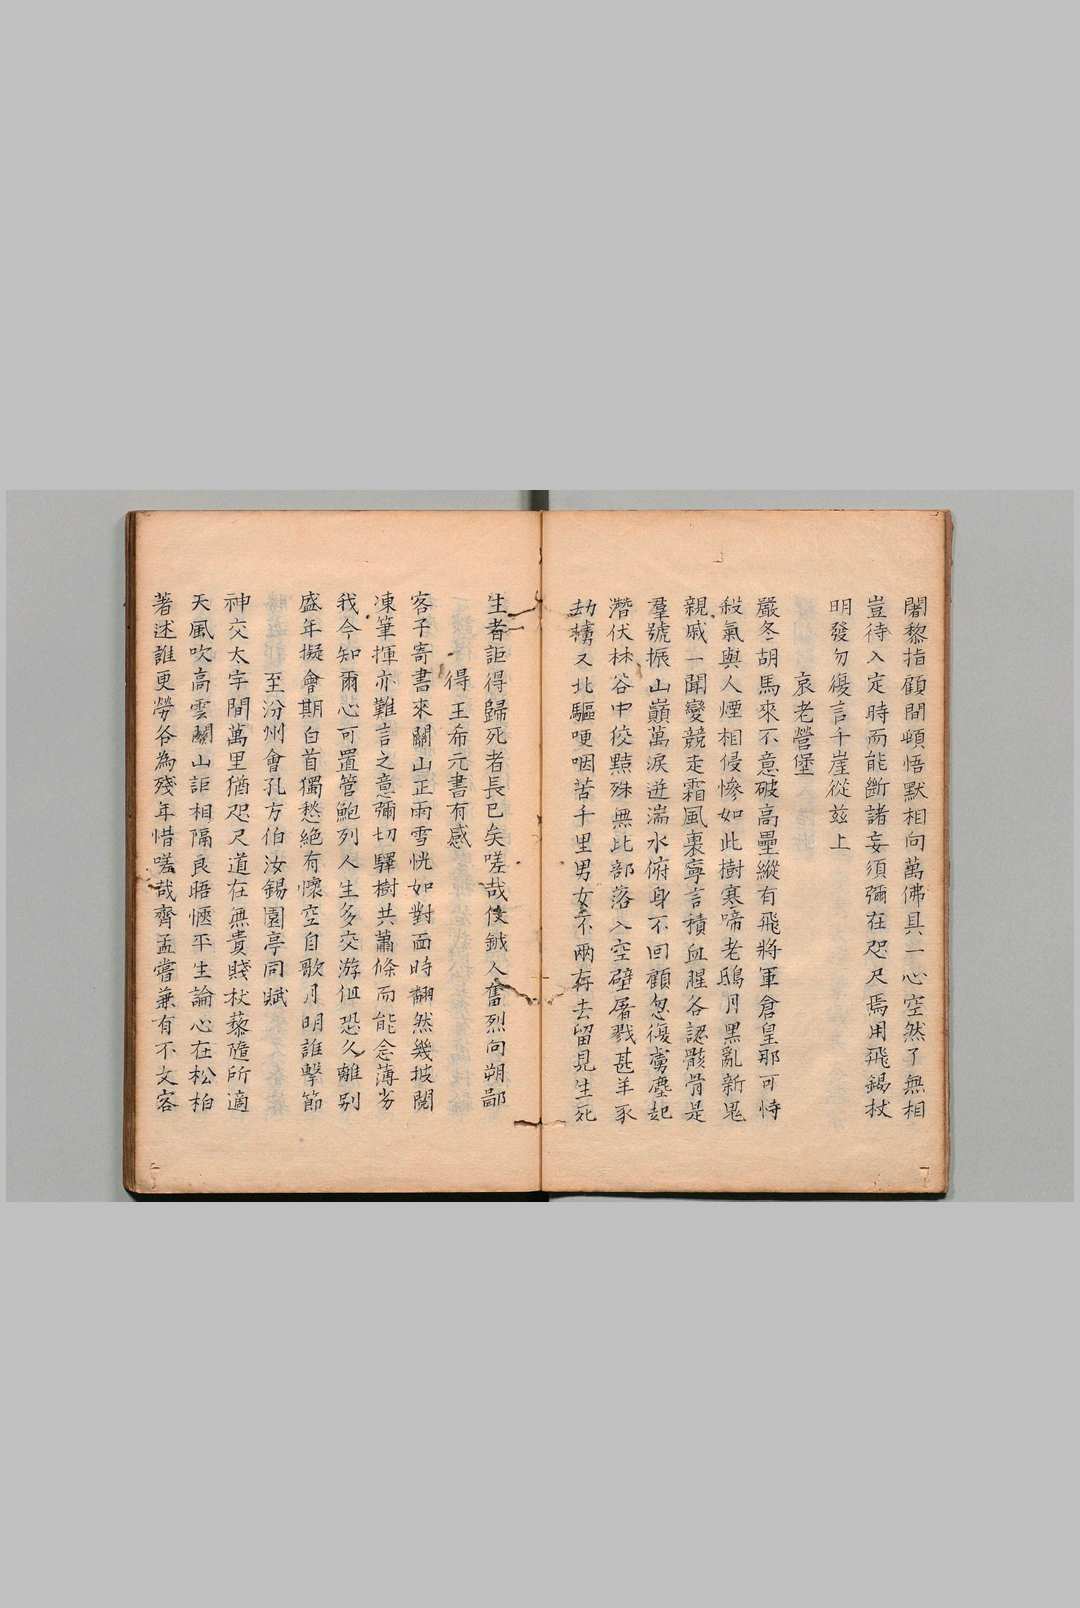 闍黎指顧間頓悟默相向萬佛具一心空然了無相
豈待入定時而能斷諸妄須彌在咫尺焉用飛錫杖
明發勿復言千崖從玆上
哀老營堡
嚴冬胡馬來不意破高壘縱有飛將軍倉皇那可恃
殺氣與人煙相侵慘如此樹寒啼老鴟月黑亂新鬼
親戚一聞變競走霜風裏寧言積血腥各認骸骨是
羣號振山巔萬淚迸湍水俯身不回顧忽復虜塵起
潛伏林谷中佼黠殊無比部落入空壁屠戮甚羊豕
劫擄又北驅哽咽苦千里男女不兩存去留見生死
生者詎得歸死者長已矣嗟哉伎鉞人奮烈向朔鄙
得王希元書有感
客子寄書來關山正雨雪恍如對面時翻然幾披閱
凍筆揮亦難言之意彌切驛樹共蕭條而能念薄劣
我今知爾心可置管鮑列人生多交游但恐久離別
盛年擬會期白首獨愁絕有懷空自歌月明誰擊節
至汾州會孔方伯汝錫園亭同賦
神交太字間萬里猶咫尺道在無貴賤杖藜隨所適
天風吹高雲關山詎相隔良晤愜平生論心在松柏
著述誰更勞爷為殘年惜嗟哉齊孟嘗兼有不文客